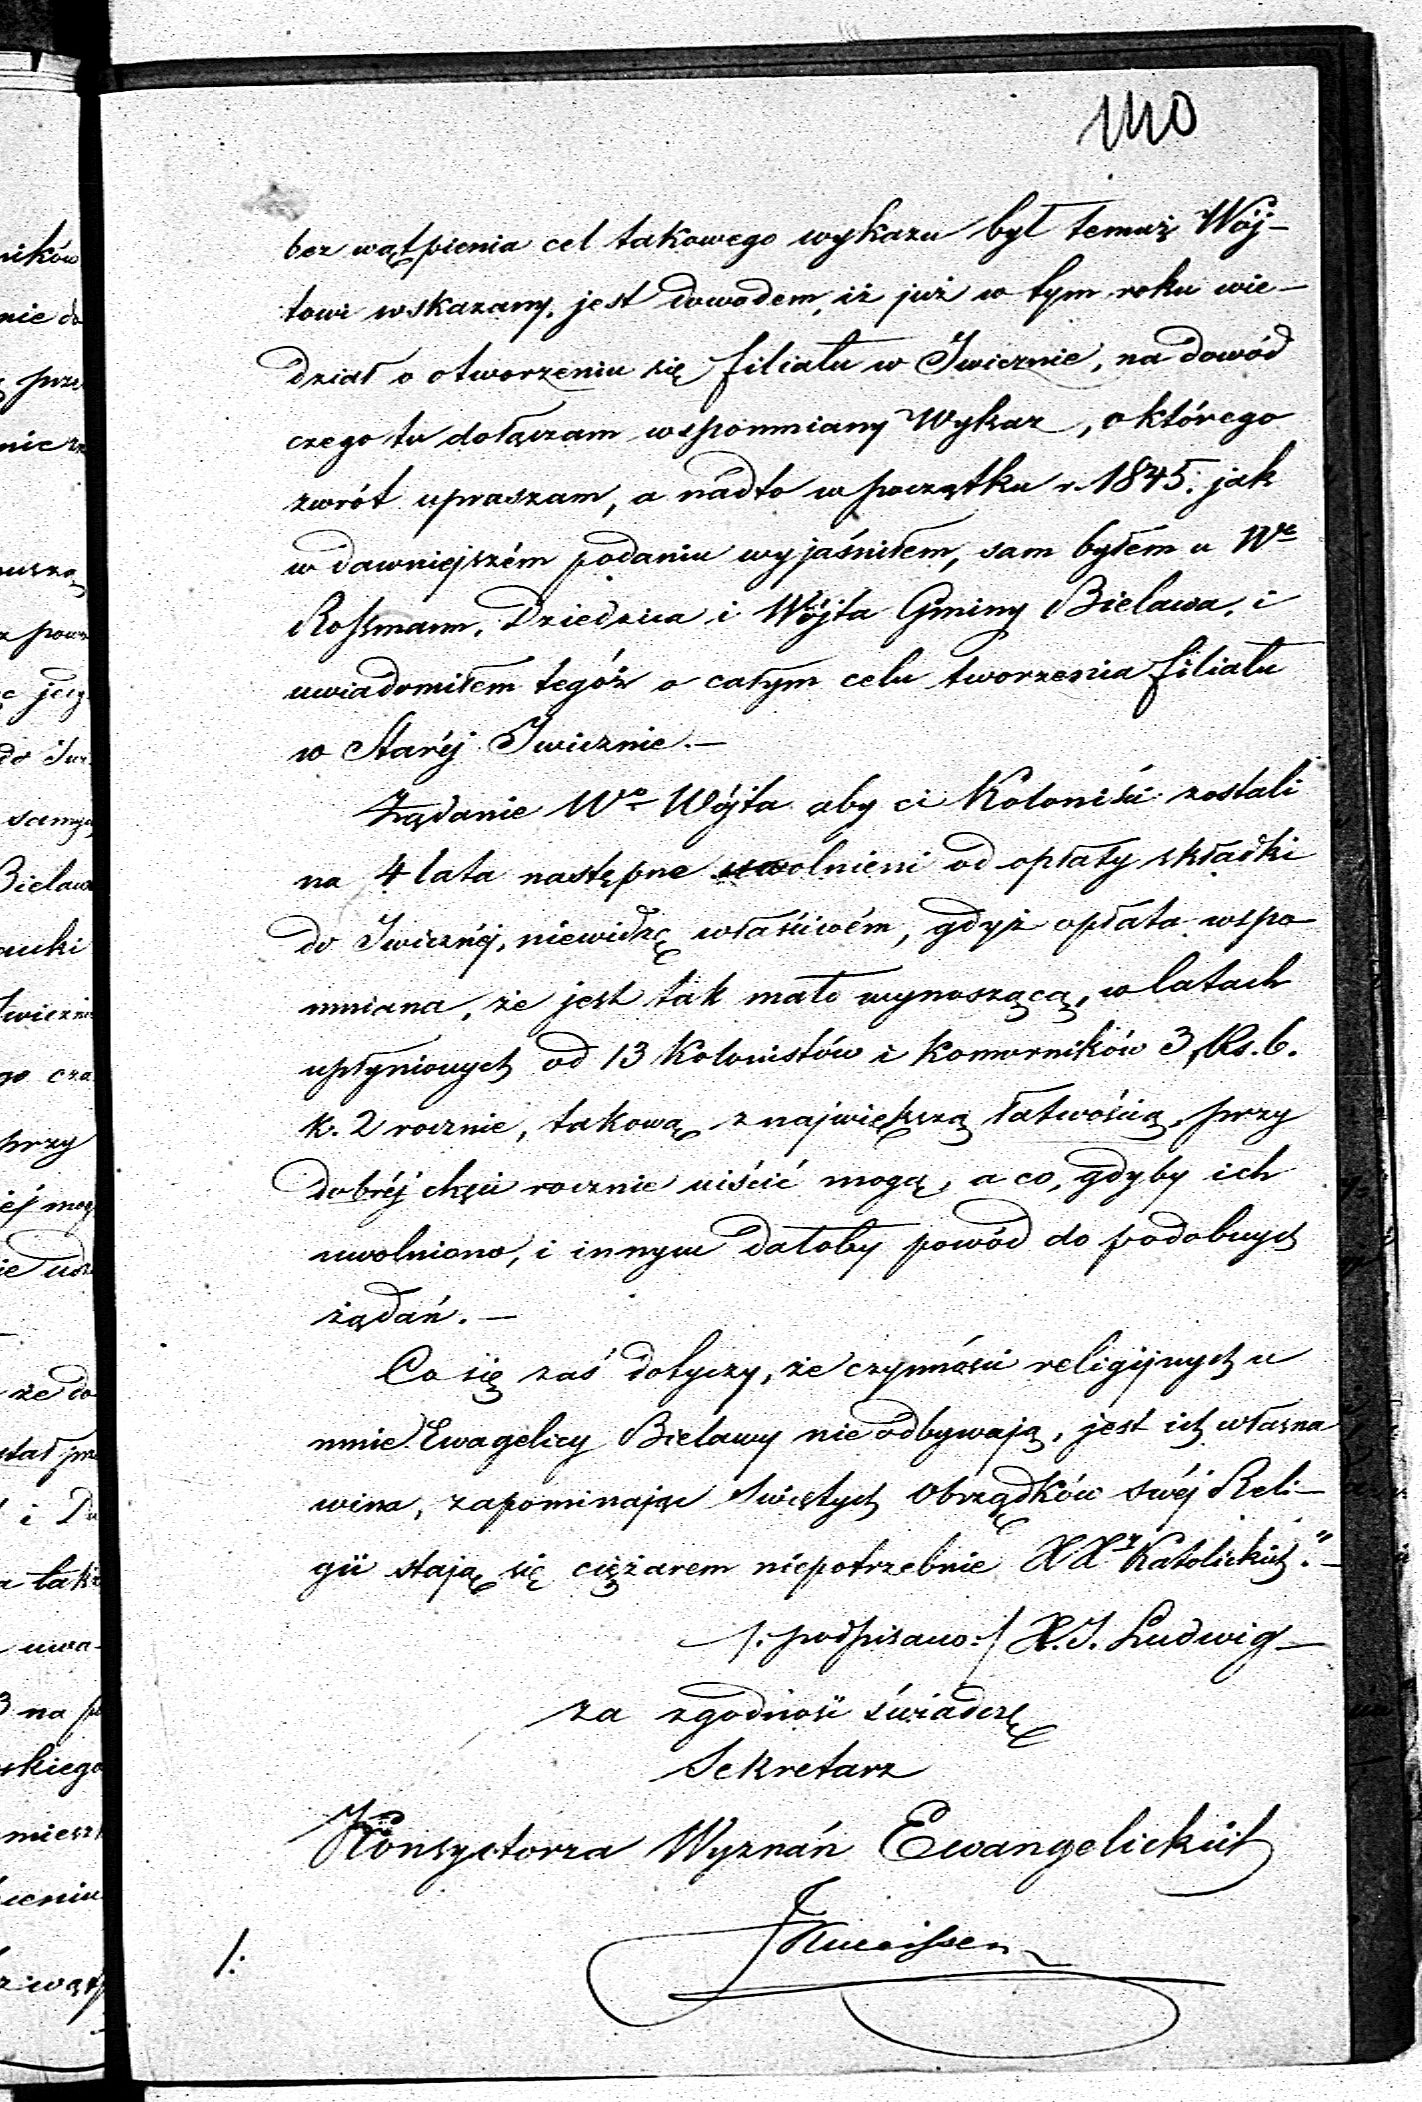 1110
bez wątpienia cel takowego wykazu był temuż Wój-
towi wskazany, jest dowodem, iż już w tym roku wie-
dział o otworzeniu się filiału w Iwicznie, na dowód
czego tu dołączam wspomniany Wykaz, o którego
zwrót upraszam, a nadto w początku r. 1845. jak
w dawniejszém podaniu wyjaśniłem, sam byłem u We
Rossmann, Dziedzica i Wójta Gminy Bielawa, i
uwiadomiłem tegóż o całym celu tworzenia filiału
w Staréj Iwicznie.—
Żądanie Wo Wójta aby ci Koloniści zostali
na 4 lata następne uwolnieni od opłaty składki
do Iwicznéj, niewidzę właściwém, gdyż opłata wspo-
mniana, że jest tak mało wynoszącą, w latach
upłynionych od 13 Kolonistów i Komorników 3, Rs. 6.
k. 2 rocznie, takową z największą łatwością, przy
dobréj chęci rocznie uiścić mogą, a co, gdyby ich
uwolniono, i innym dałoby powód do podobnych
żądań.—
Co się zaś dotyczy, że czynności religijnych u
mnie Ewagelicy Bielawy nie odbywają, jest ich własna
wina, zapominając Świętych obrządków swéj Reli-
gii stają się ciężarem niepotrzebnie XXży Katolickich."—
/: podpisano :/ X. J. Ludwig—
za zgodność świadczę
Sekretarz
Konsystorza Wyznań Ewangelickich
/: